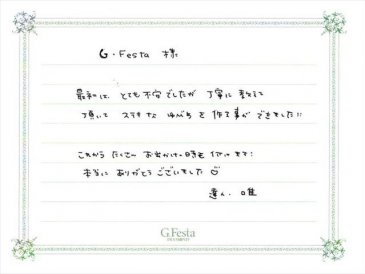 G・Festa 様
最初は、とても不安でしたが 丁寧に 教えて
頂いて ステキな ゆびわ を 作る事が できました!!
これから たくさん お出かけの時も 使います!
本当に ありがとう ございました♡
唯
G.Festa